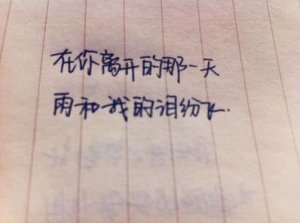 在你离开的那一天
雨和我的泪纷飞.